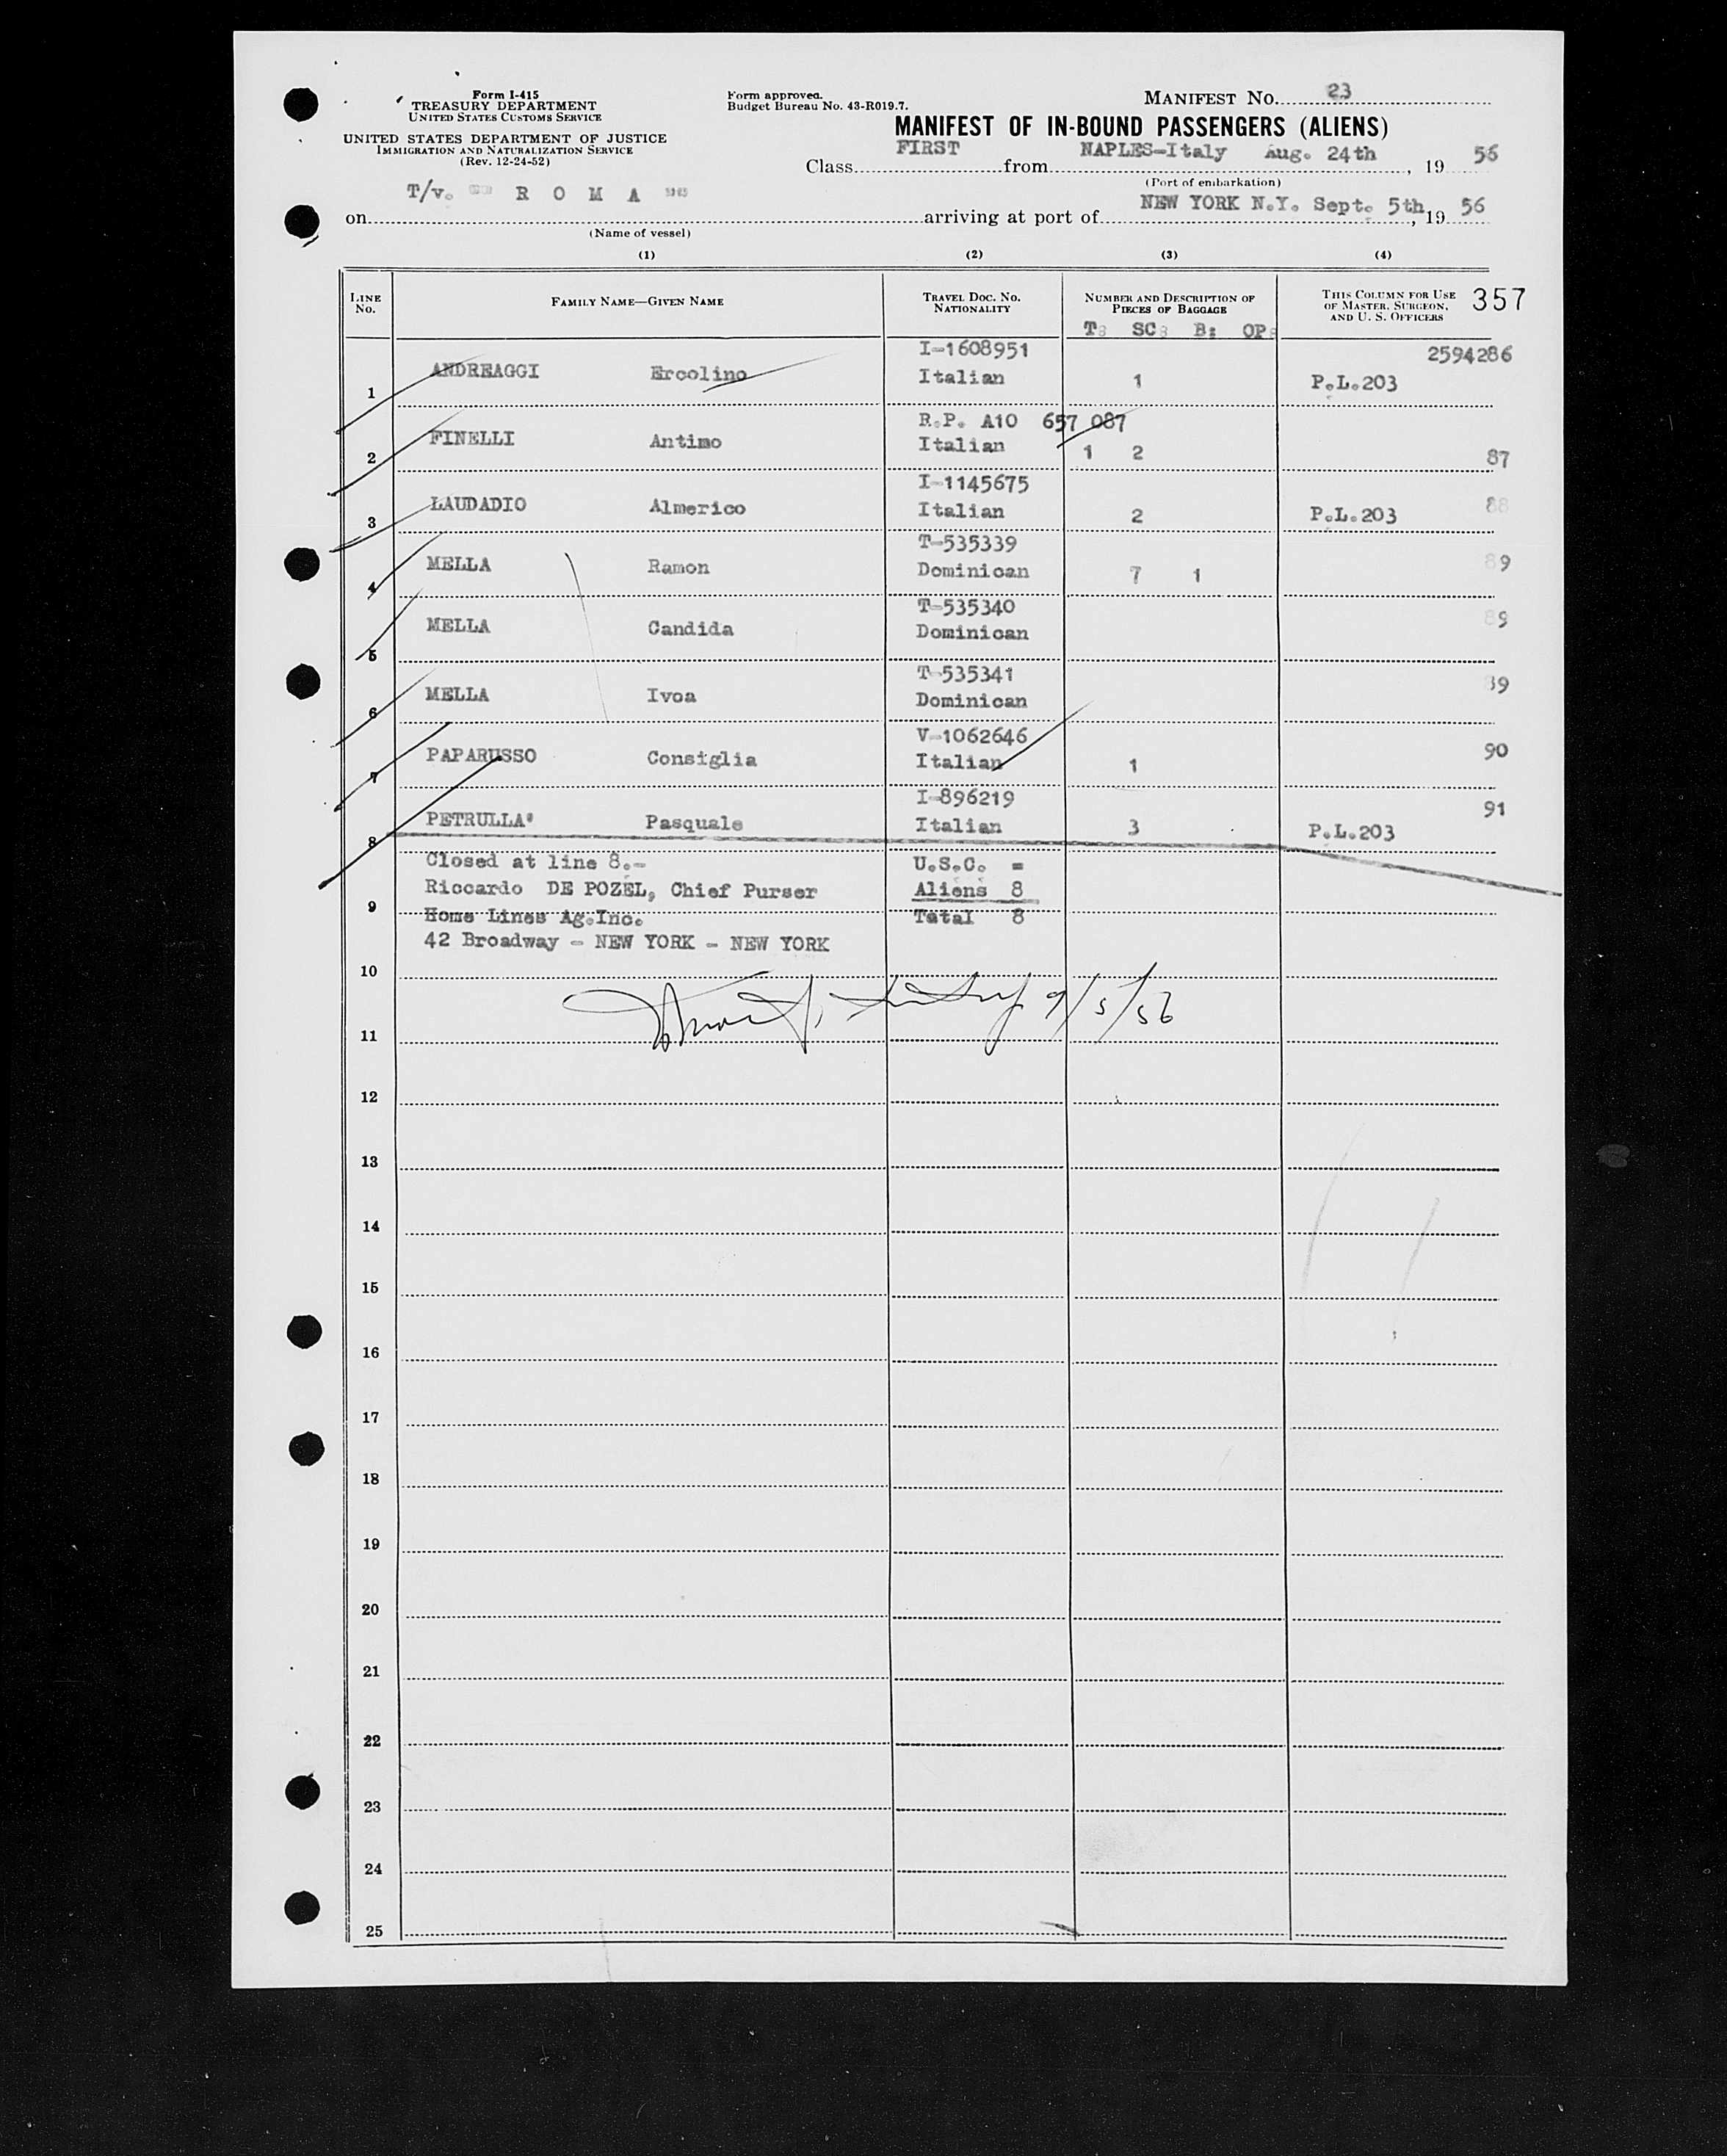 Form I-415
TREASURY DEPARTMENT
UNITED STATES CUSTOMS SERVICE
UNITED STATES DEPARTMENT OF JUSTICE
IMMIGRATION AND NATURALIZATION SERVICE
(Rev. 12-24-52)
Form approved.
Budget Bureau No. 43-R019.7.
MANIFEST NO. 23
MANIFEST OF IN-BOUND PASSENGERS (ALIENS)
Class FIRST from NAPLES-Italy Aug. 24th, 19 56
(Port of embarkation)
on T/v. " R O M A " arriving at port of NEW YORK N.Y. Sept. 5th, 19 56
(Name of vessel)
(1) (2) (3) (4)
LINE NO. FAMILY NAME—GIVEN NAME TRAVEL DOC. NO. NATIONALITY NUMBER AND DESCRIPTION OF PIECES OF BAGGAGE THIS COLUMN FOR USE OF MASTER, SURGEON, AND U. S. OFFICERS 357
T: SC: B: OP:
I-1608951 2594286
1 ANDREAGGI Ercolino Italian 1 P.L.203
R.P. A10 657 087
2 FINELLI Antimo Italian 1 2 87
I-1145675
3 LAUDADIO Almerico Italian 2 P.L.203 88
T-535339
4 MELLA Ramon Dominican 7 1 89
T-535340
5 MELLA Candida Dominican 89
T-535341
6 MELLA Ivoa Dominican 89
V-1062646
7 PAPARUSSO Consiglia Italian 1 90
I-896219
8 PETRULLA' Pasquale Italian 3 P.L.203 91
Closed at line 8.- U.S.C. =
Riccardo DE POZEL, Chief Purser Aliens 8
9 Home Lines Ag.Inc. Tatal 8
42 Broadway - NEW YORK - NEW YORK
10
9/5/56
11
12
13
14
15
16
17
18
19
20
21
22
23
24
25